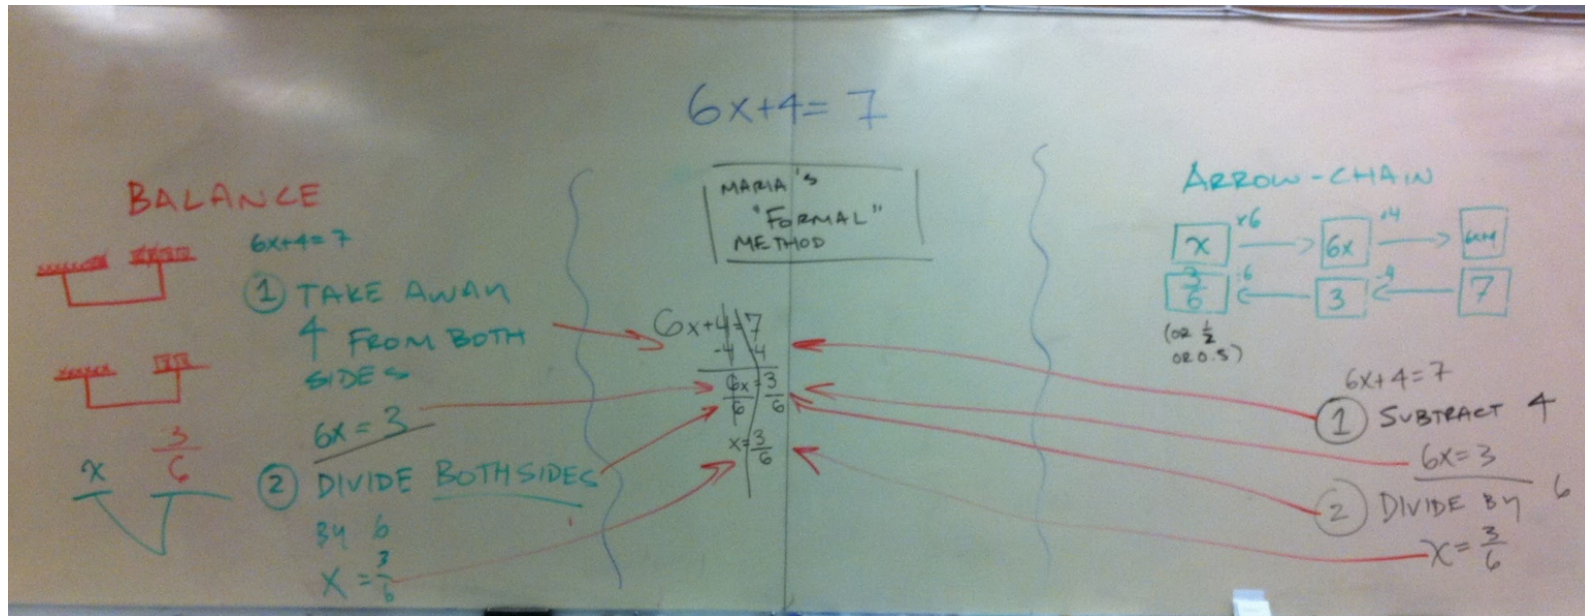 6x+4=7
BALANCE
6x+4=7
① TAKE AWAY
4 FROM BOTH
SIDES
6x = 3
② DIVIDE BOTH SIDES
BY 6
x = 3/6
x 3/6
MARIA'S
"FORMAL"
METHOD
6x+4=7
-4 -4
6x=3
6 6
x=3/6
ARROW-CHAIN
x ×6 6x +4 6x+4
3/6 ÷6 3 -4 7
(OR 1/2
OR 0.5)
6x+4=7
① SUBTRACT 4
6x=3
② DIVIDE BY 6
x=3/6